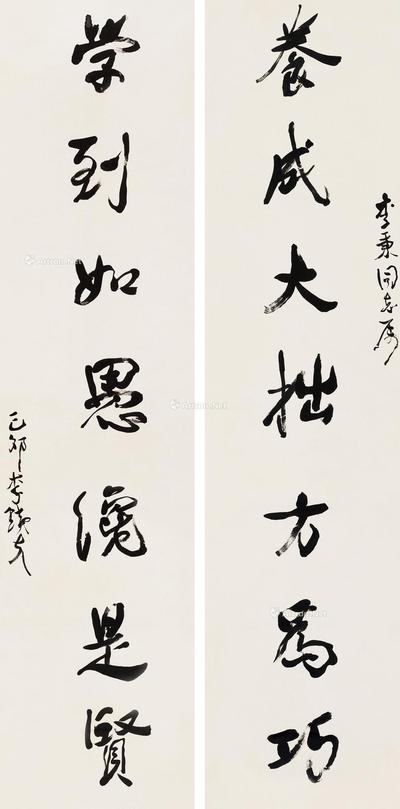 養成大拙方為巧
李秉同志属
学到如愚纔是賢
己卯李鐸书
Artron.Net
Artron.Net
Artron.Net
Artron.Net